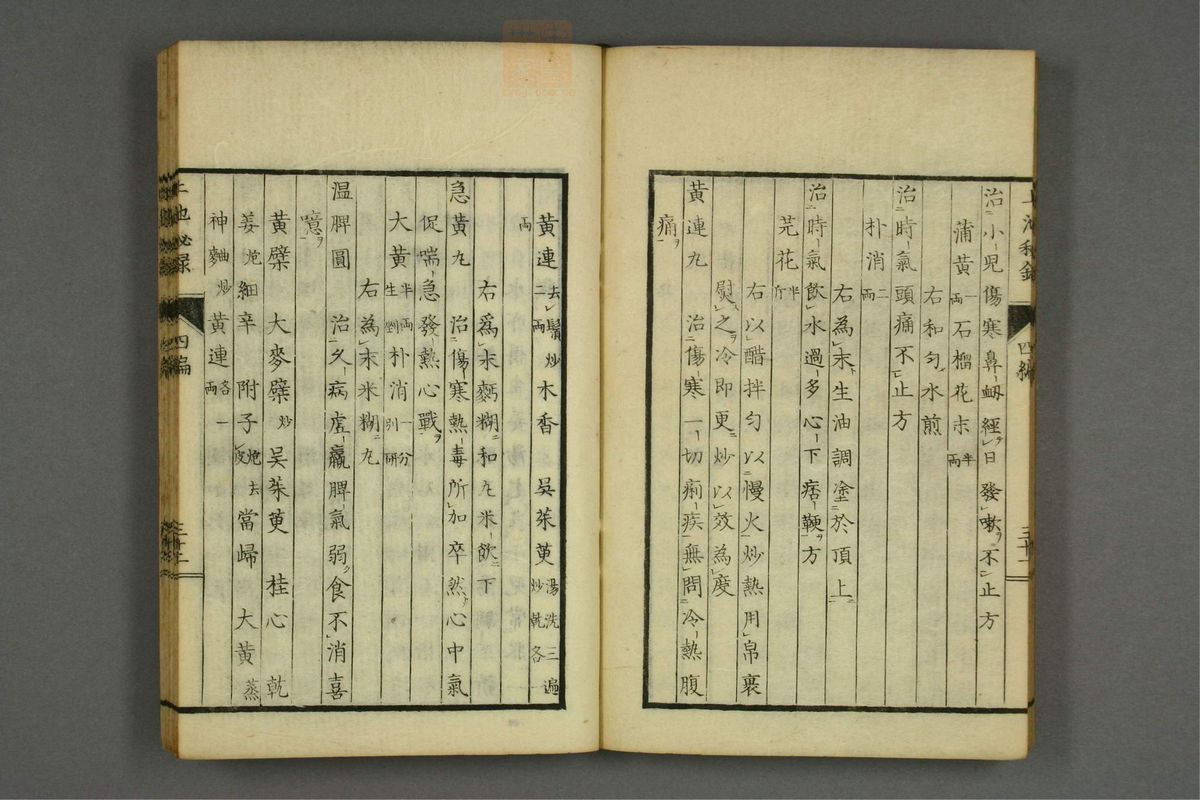 治小児傷寒鼻衂経日発嗽不止方
蒲黄一両石榴花末半両
右和匀水煎
治時気頭痛不止方
朴消二両
右為末生油調塗於頂上
治時気飲水過多心下痞鞕方
芫花半斤
右以醋拌匀以慢火炒熱用帛裹
熨之冷即更炒以效為度
黄連丸 治傷寒一切痢疾無問冷熱腹
痛
黄連去鬚炒二両木香 呉茱萸湯洗三遍炒乾各
両
右為末麪糊和丸米飲下
急黄丸 治傷寒熱毒所加卒然心中気
促喘急発熱心戦
大黄半両生剉朴消一分別研
右為末米糊丸
温脾圓 治久病虚羸脾気弱食不消喜
噫
黄檗 大麥檗炒 呉茱萸 桂心 乾
姜炮細辛 附子炮去皮當帰 大黄蒸
神麯炒黄連各一両
四編
四編